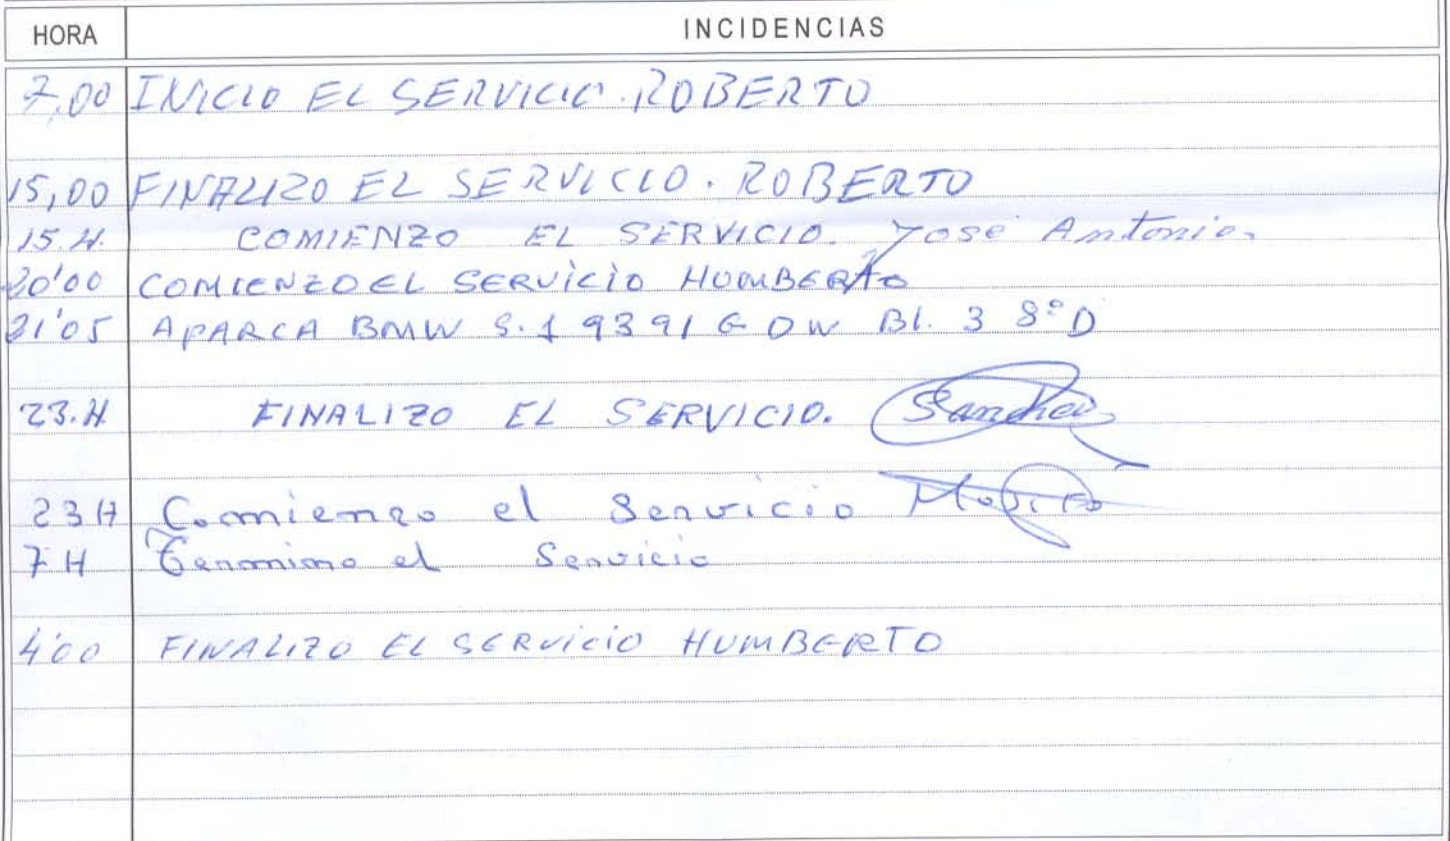 HORA INCIDENCIAS
7,00 INICIO EL SERVICIO. ROBERTO
15,00 FINALIZO EL SERVICIO. ROBERTO
15 H. COMIENZO EL SERVICIO. José Antonio.
20'00 COMIENZO EL SERVICIO HUMBERTO
21'05 APARCA BMW S.1 9391 GDW Bl. 3 8º D
23.H. FINALIZO EL SERVICIO. Sanchez
23 H Comienzo el Servicio
7 H el Servicio
4'00 FINALIZO EL SERVICIO HUMBERTO